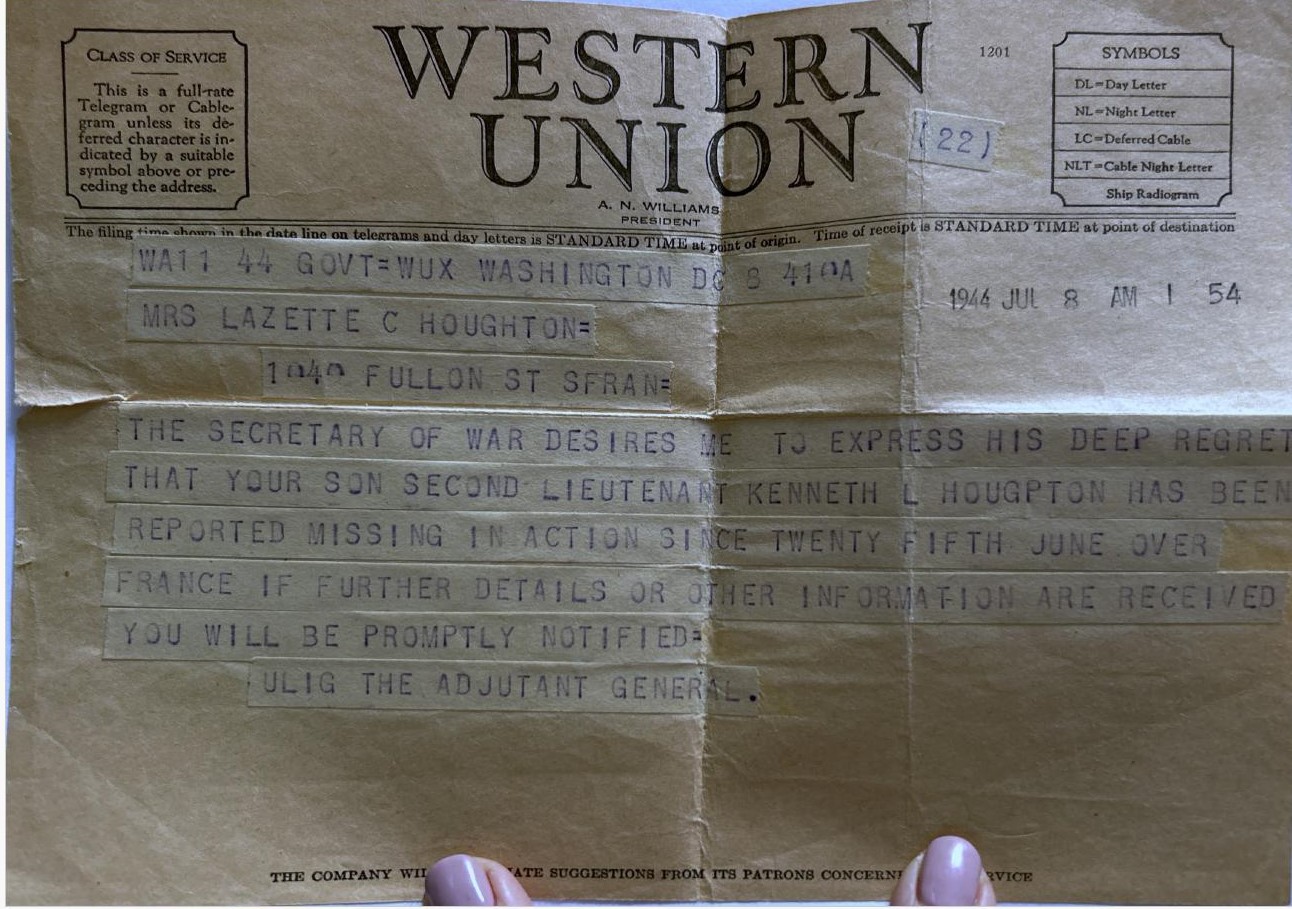 CLASS OF SERVICE
This is a full-rate
Telegram or Cable-
gram unless its de-
ferred character is in-
dicated by a suitable
symbol above or pre-
ceding the address.
WESTERN
UNION
A. N. WILLIAMS
PRESIDENT
1201
(22)
SYMBOLS
DL=Day Letter
NL=Night Letter
LC=Deferred Cable
NLT=Cable Night Letter
Ship Radiogram
The filing time shown in the date line on telegrams and day letters is STANDARD TIME at point of origin. Time of receipt is STANDARD TIME at point of destination
WA11 44 GOVT=WUX WASHINGTON DC 8 410A
1944 JUL 8 AM 1 54
MRS LAZETTE C HOUGHTON=
1040 FULLON ST SFRAN=
THE SECRETARY OF WAR DESIRES ME TO EXPRESS HIS DEEP REGRET
THAT YOUR SON SECOND LIEUTENANT KENNETH L HOUGPTON HAS BEEN
REPORTED MISSING IN ACTION SINCE TWENTY FIFTH JUNE OVER
FRANCE IF FURTHER DETAILS OR OTHER INFORMATION ARE RECEIVED
YOU WILL BE PROMPTLY NOTIFIED=
ULIG THE ADJUTANT GENERAL.
THE COMPANY SUGGESTIONS FROM ITS PATRONS